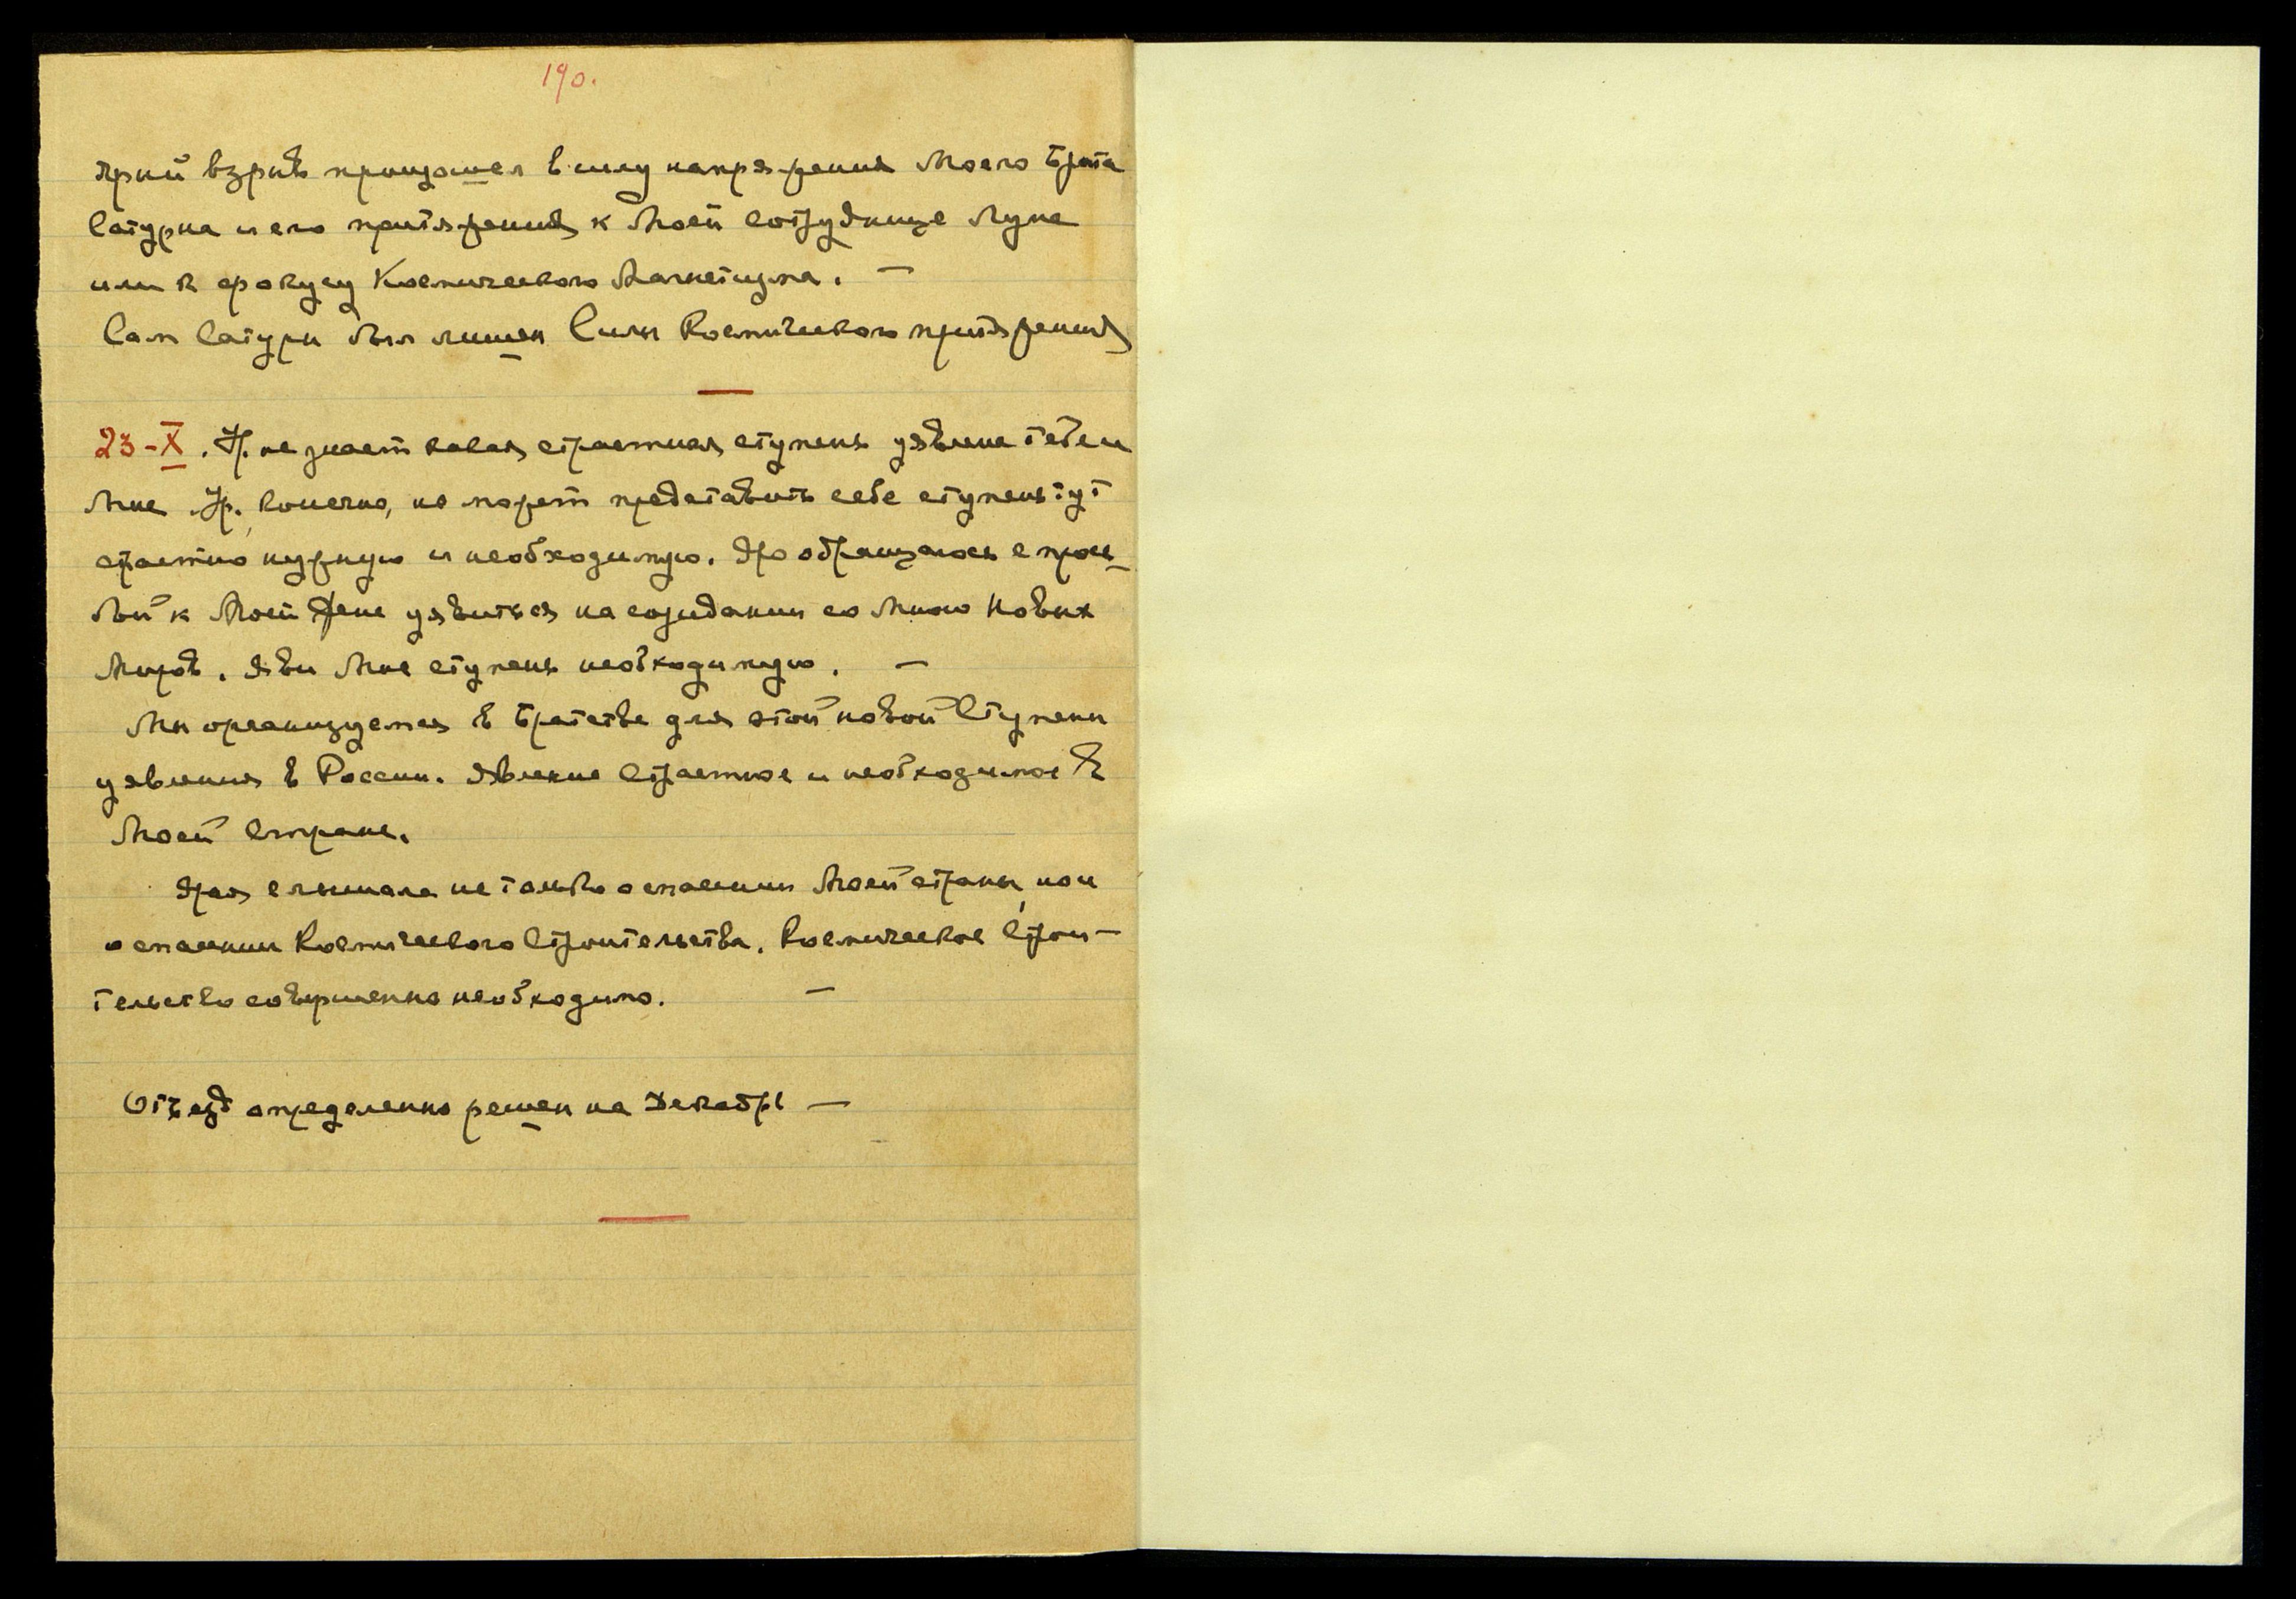 190.
Ярый взрыв произошел в силу напряжения Моего Брата
Сатурна и его притяжения к Моей сотруднице Луне
или к фокусу Космического Магнетизма. —
Сам Сатурн был лишен Силы Космического притяжения
23-X. Ур. не знает какая страстная ступень уявлена тебе и
Мне. Ур. конечно, не может представить себе ступень ту
страстно нужную и необходимую. Яро обращаюсь с прось-
бой к Моей Жене уявиться на созидании со Мною Новых
Миров. Яви Мне ступень необходимую. —
Мы организуемся в Братстве для этой новой Ступени
уявления в России. Явление Страстное и необходимое в
Моей стране.
Ярая слышала не только о спасении Моей страны, но и
о спасении Космического Строительства. Космическое Строи-
тельство совершенно необходимо. —
Отъезд определенно решен на Декабрь —